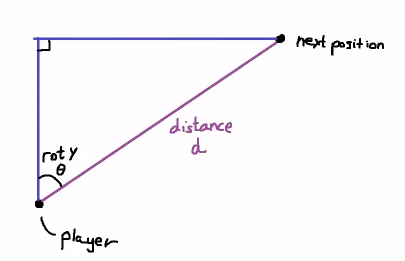 next position
distance
d
rot y
θ
player